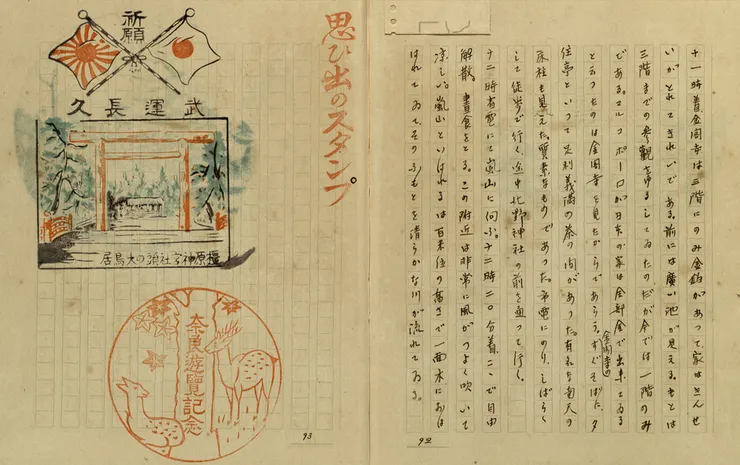 十一時着金閣寺は三階にのみ金箔があって、家はせんせ
いがとれてきれいである。前には廣い池が見える。もとは
三階までの参観をゆるしてゐたのだが今では一階のみ
である。マルコポーロが日本の家は全部金で出来てゐる
と云ったのは金閣寺を見たからであらう。すぐそばに、夕
金閣寺の
佳亭といって足利義満の茶の間があった。有名な南天の
床柱も見えた。質素なものであった。市電にのり、しばらく
して徒歩で行く。途中北野神社の前を通って行く。
十二時省電にて嵐山に向ふ。十二時二〇分着、こゝで自由
解散。晝食をとる。この附近は非常に風がつよく吹いて
凉しい。嵐山といはれるは百米位の高さで一面木におほ
はれてゐて、そのふもとを清らかな川が流れてゐる。
92
思ひ出のスタンプ
祈願
武運長久
橿原神宮社頭の大鳥居
奈良遊覧記念
93